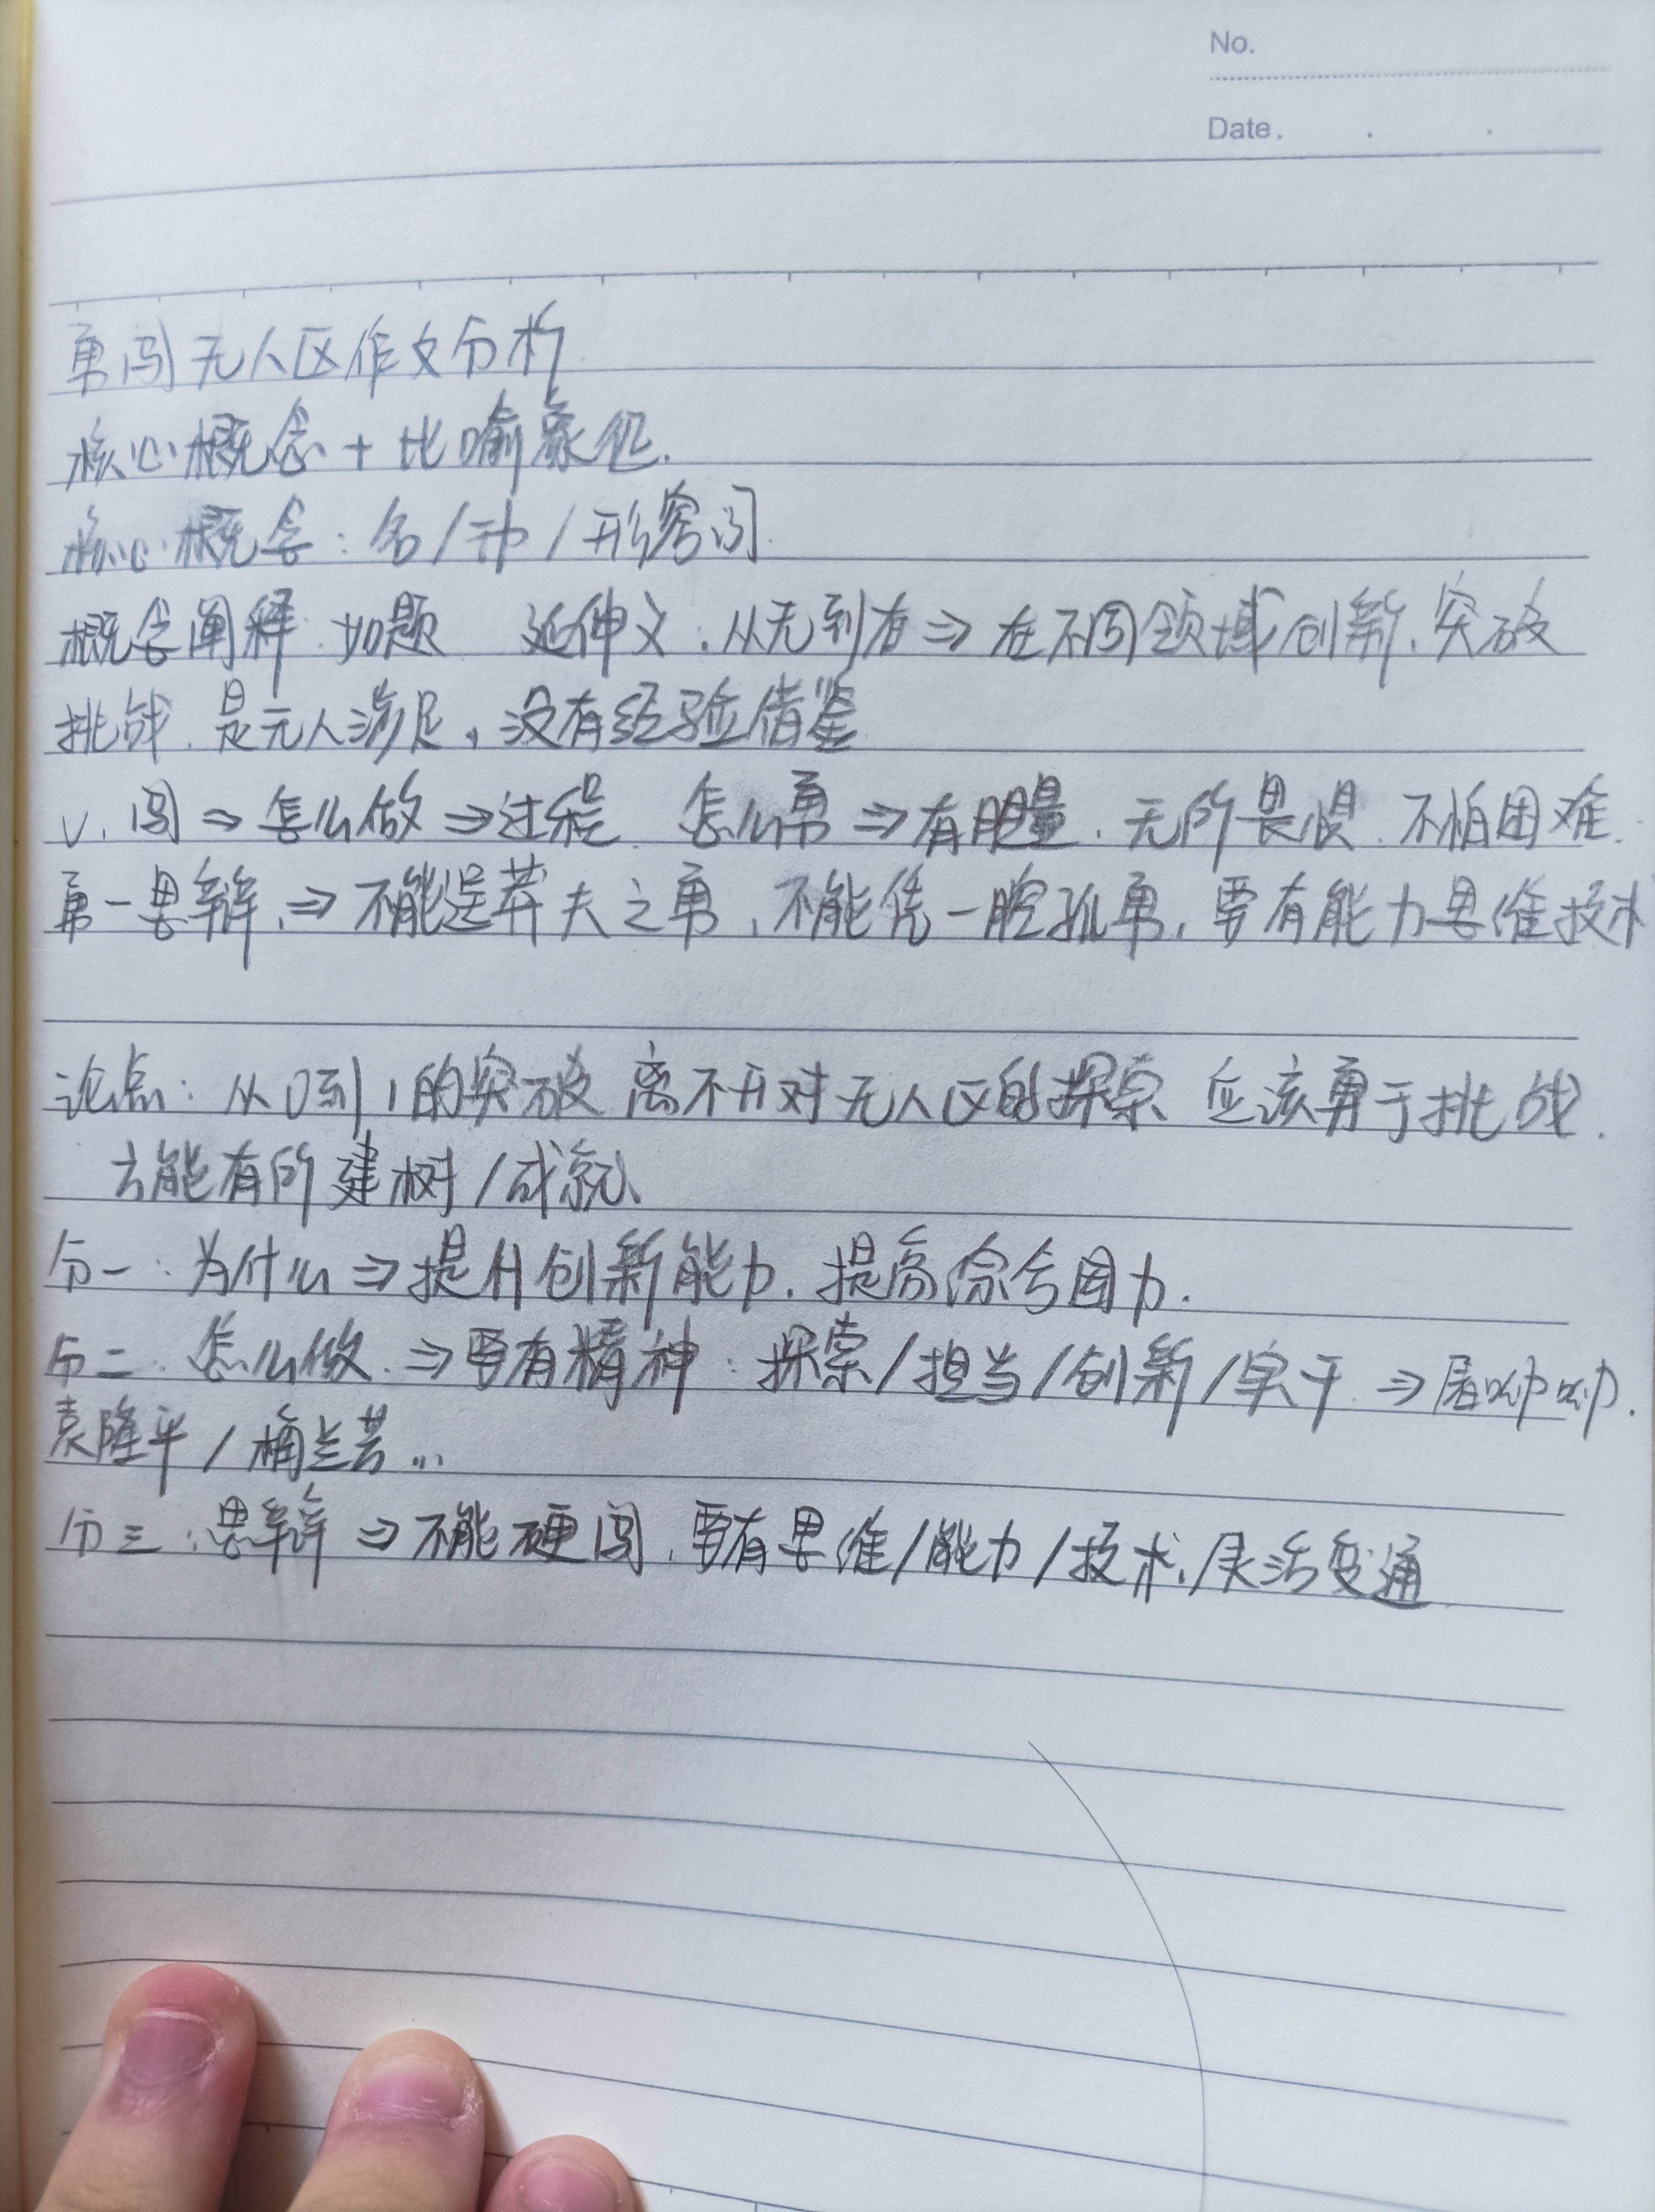 No.
Date.
勇闯无人区作文分析
核心概念+比喻象征.
核心概念:名/动/形容词
概念阐释:如题 延伸义:从无到有⇒在不同领域创新、突破
挑战、是无人涉足、没有经验借鉴
v.闯⇒怎么做⇒过程 怎么勇⇒有胆量、无所畏惧 不怕困难.
勇-思辩⇒不能逞莽夫之勇,不能凭一腔孤勇,要有能力思维技术
论点:从0到1的突破 离不开对无人区的探索 应该勇于挑战.
方能有所建树/成就
分一:为什么⇒提升创新能力.提高综合国力.
分二:怎么做⇒要有精神:探索/担当/创新/实干⇒屠呦呦.
袁隆平/梅兰芳...
分三:思辩⇒不能硬闯,要有思维/能力/技术,灵活变通